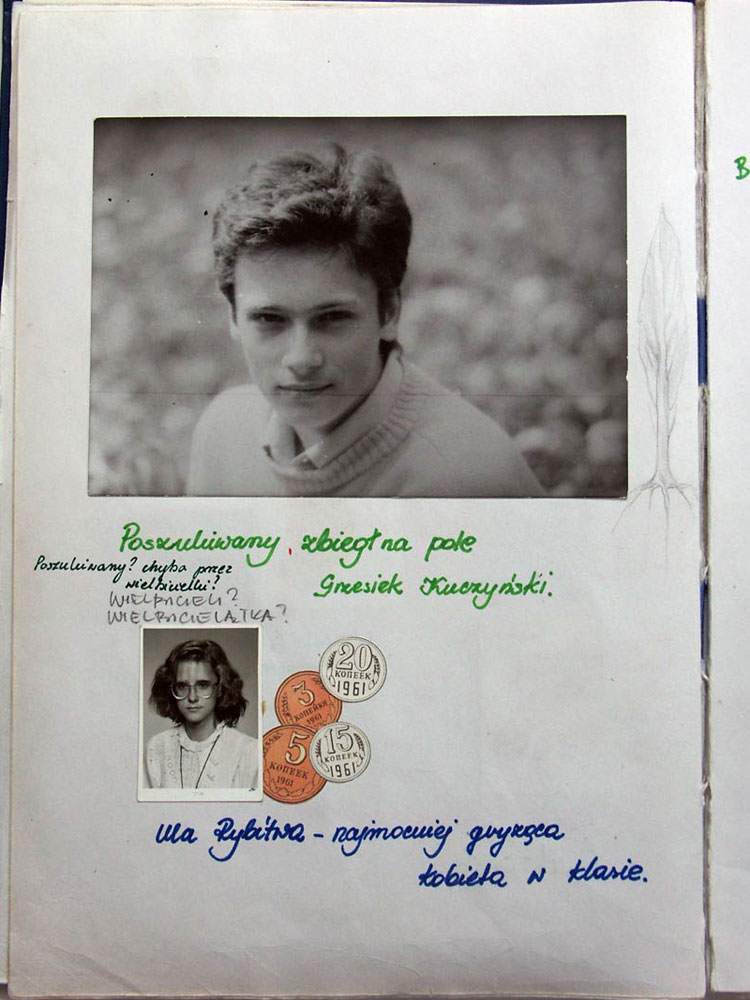 Poszukiwany, zbiegł na pole
Poszukiwany? chyba przez
wielbicielki?
Grzesiek Kuczyński.
WIELBICIELI?
WIELBICIELĄTKA?
20
КОПЕЕК
1961
3
КОПЕЙКИ
1961
5
КОПЕЕК
1961
15
КОПЕЕК
1961
Ula Rybitwa - najmocniej gryząca
kobieta w klasie.
B